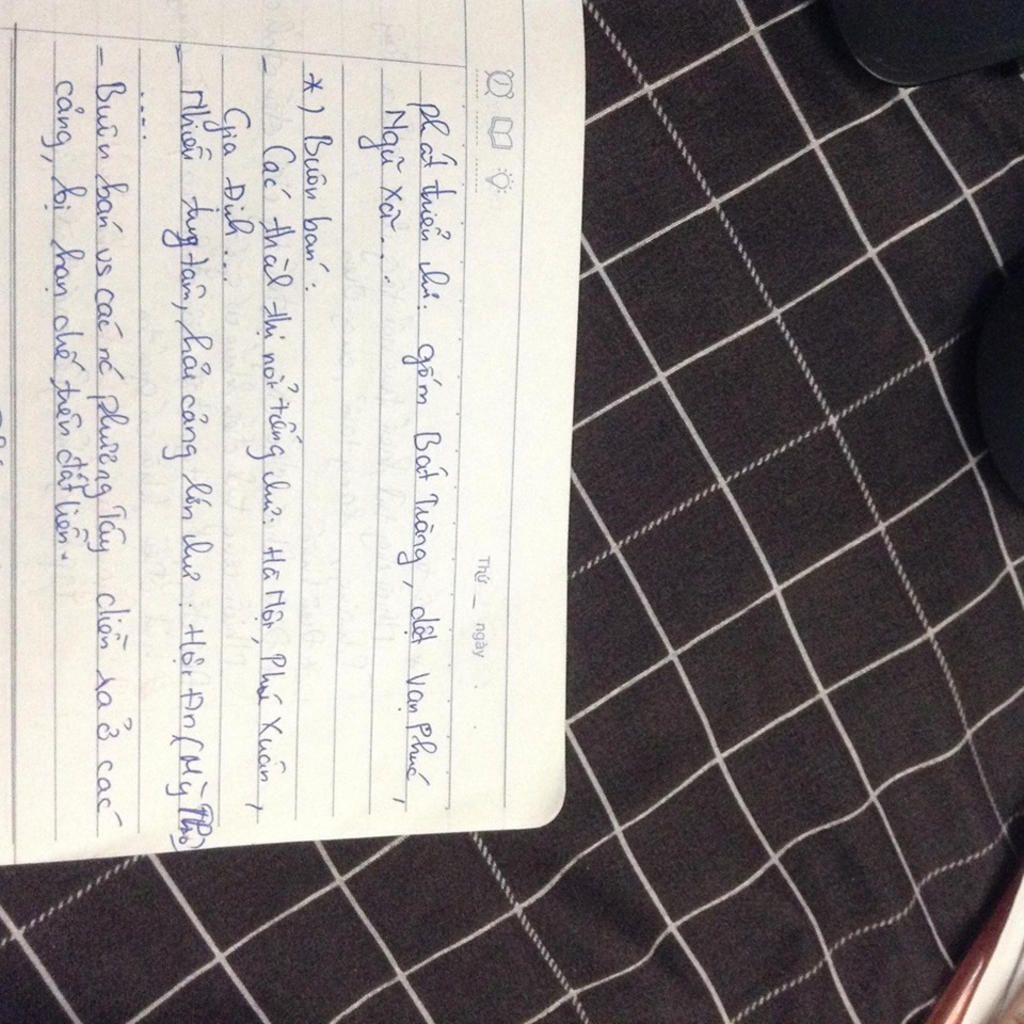 Thứ _ ngày
phát triển như: gốm Bát Tràng, dệt Vạn Phúc,
Ngũ Xã...
*) Buôn bán:
- Các thành thị nổi tiếng như: Hà Nội, Phú Xuân,
Gia Định...
- Nhiều trung tâm, hải cảng lớn như: Hội An (Mỹ Tho)
....
- Buôn bán vs các nc phương Tây diễn ra ở các
cảng, bị hạn chế trên đất liền.